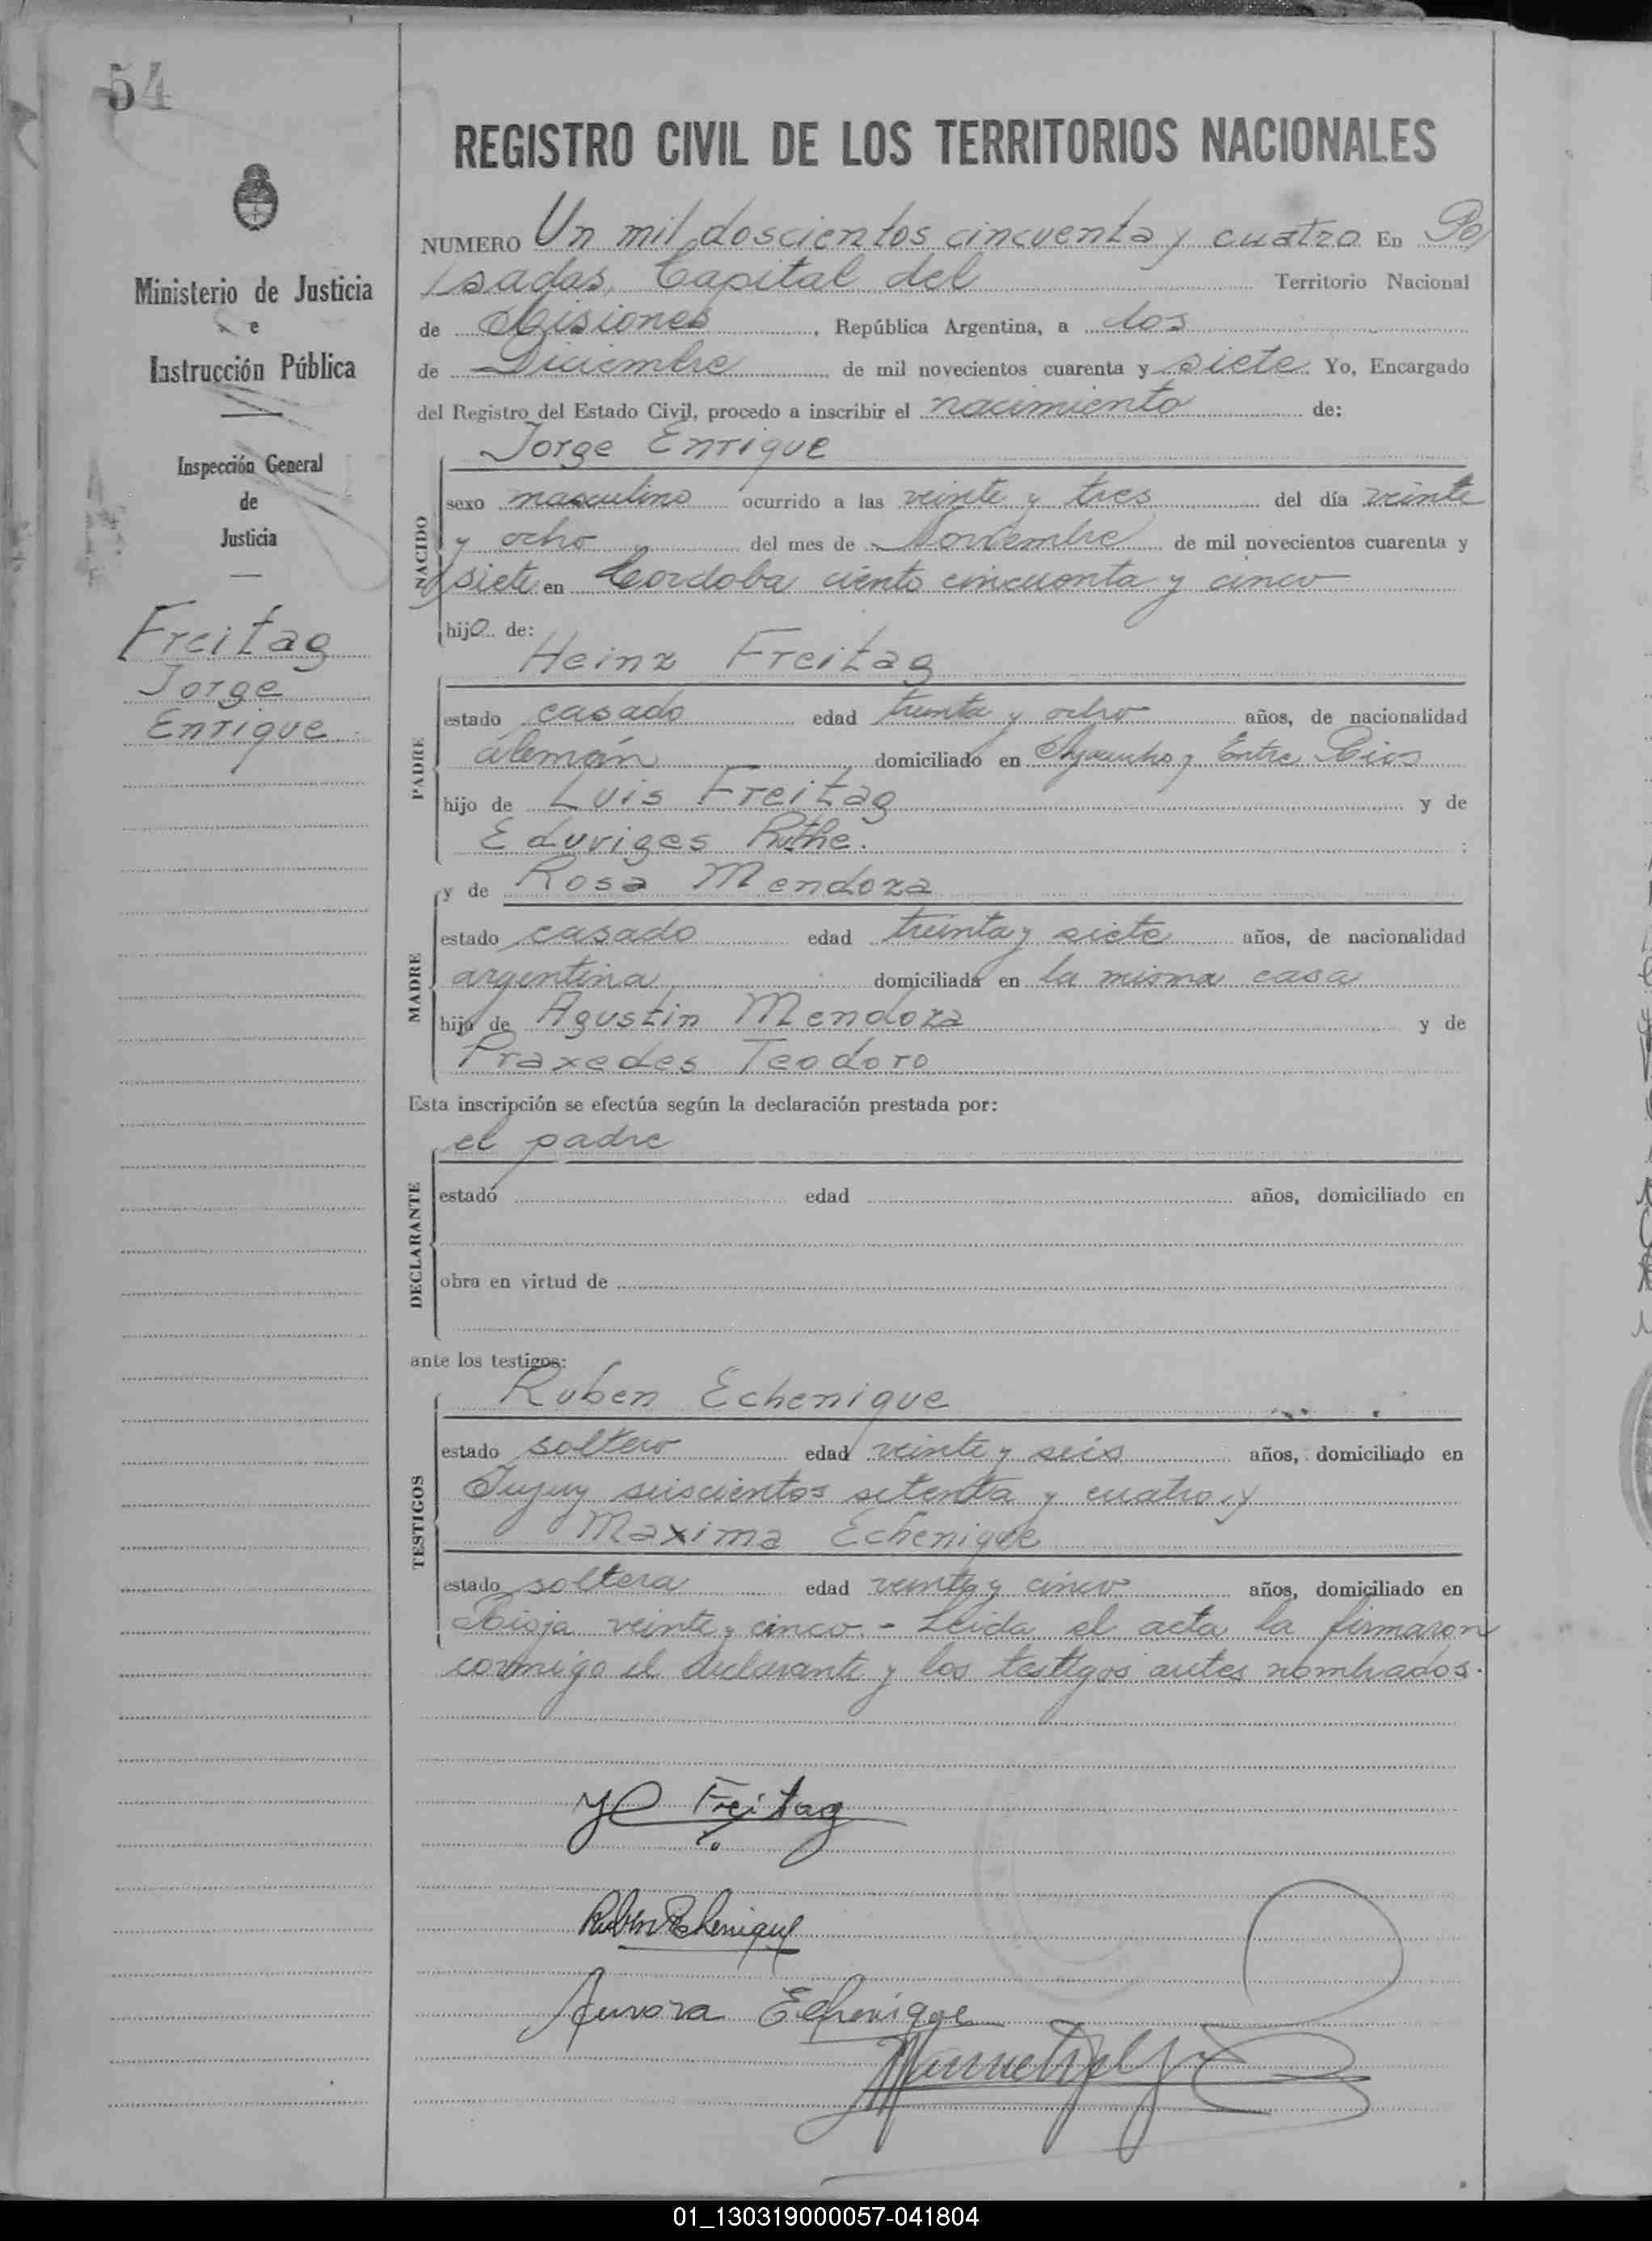 54
REGISTRO CIVIL DE LOS TERRITORIOS NACIONALES
Ministerio de Justicia
e
Instrucción Pública
Inspección General
de
Justicia
Freitag
Jorge
Enrique
NUMERO Un mil doscientos cincuenta y cuatro En Po/
/sadas, Capital del Territorio Nacional
de Misiones, República Argentina, a dos
de Diciembre de mil novecientos cuarenta y siete Yo, Encargado
del Registro del Estado Civil, procedo a inscribir el nacimiento de:
Jorge Enrique
NACIDO
sexo masculino ocurrido a las veinte y tres del día veinte
y ocho del mes de Noviembre de mil novecientos cuarenta y
siete en Cordoba ciento cincuenta y cinco
hijo de:
Heinz Freitag
PADRE
estado casado edad treinta y ocho años, de nacionalidad
alemán domiciliado en Entre Rios
hijo de Luis Freitag y de
Eduviges Ruthe.
y de Rosa Mendoza
MADRE
estado casado edad treinta y siete años, de nacionalidad
argentina domiciliada en la misma casa
hija de Agustin Mendoza y de
Praxedes Teodoro
Esta inscripción se efectúa según la declaración prestada por:
el padre
DECLARANTE
estado edad años, domiciliado en
obra en virtud de
ante los testigos:
Ruben Echenique
TESTIGOS
estado soltero edad veinte y seis años, domiciliado en
Jujuy seiscientos setenta y cuatro, y
Maxima Echenique
estado soltera edad veinte y cinco años, domiciliado en
Rioja veinte y cinco.- Leida el acta la firmaron
conmigo el declarante y los testigos antes nombrados.
Freitag
Ruben Echenique
Aurora Echenique
01_130319000057-041804